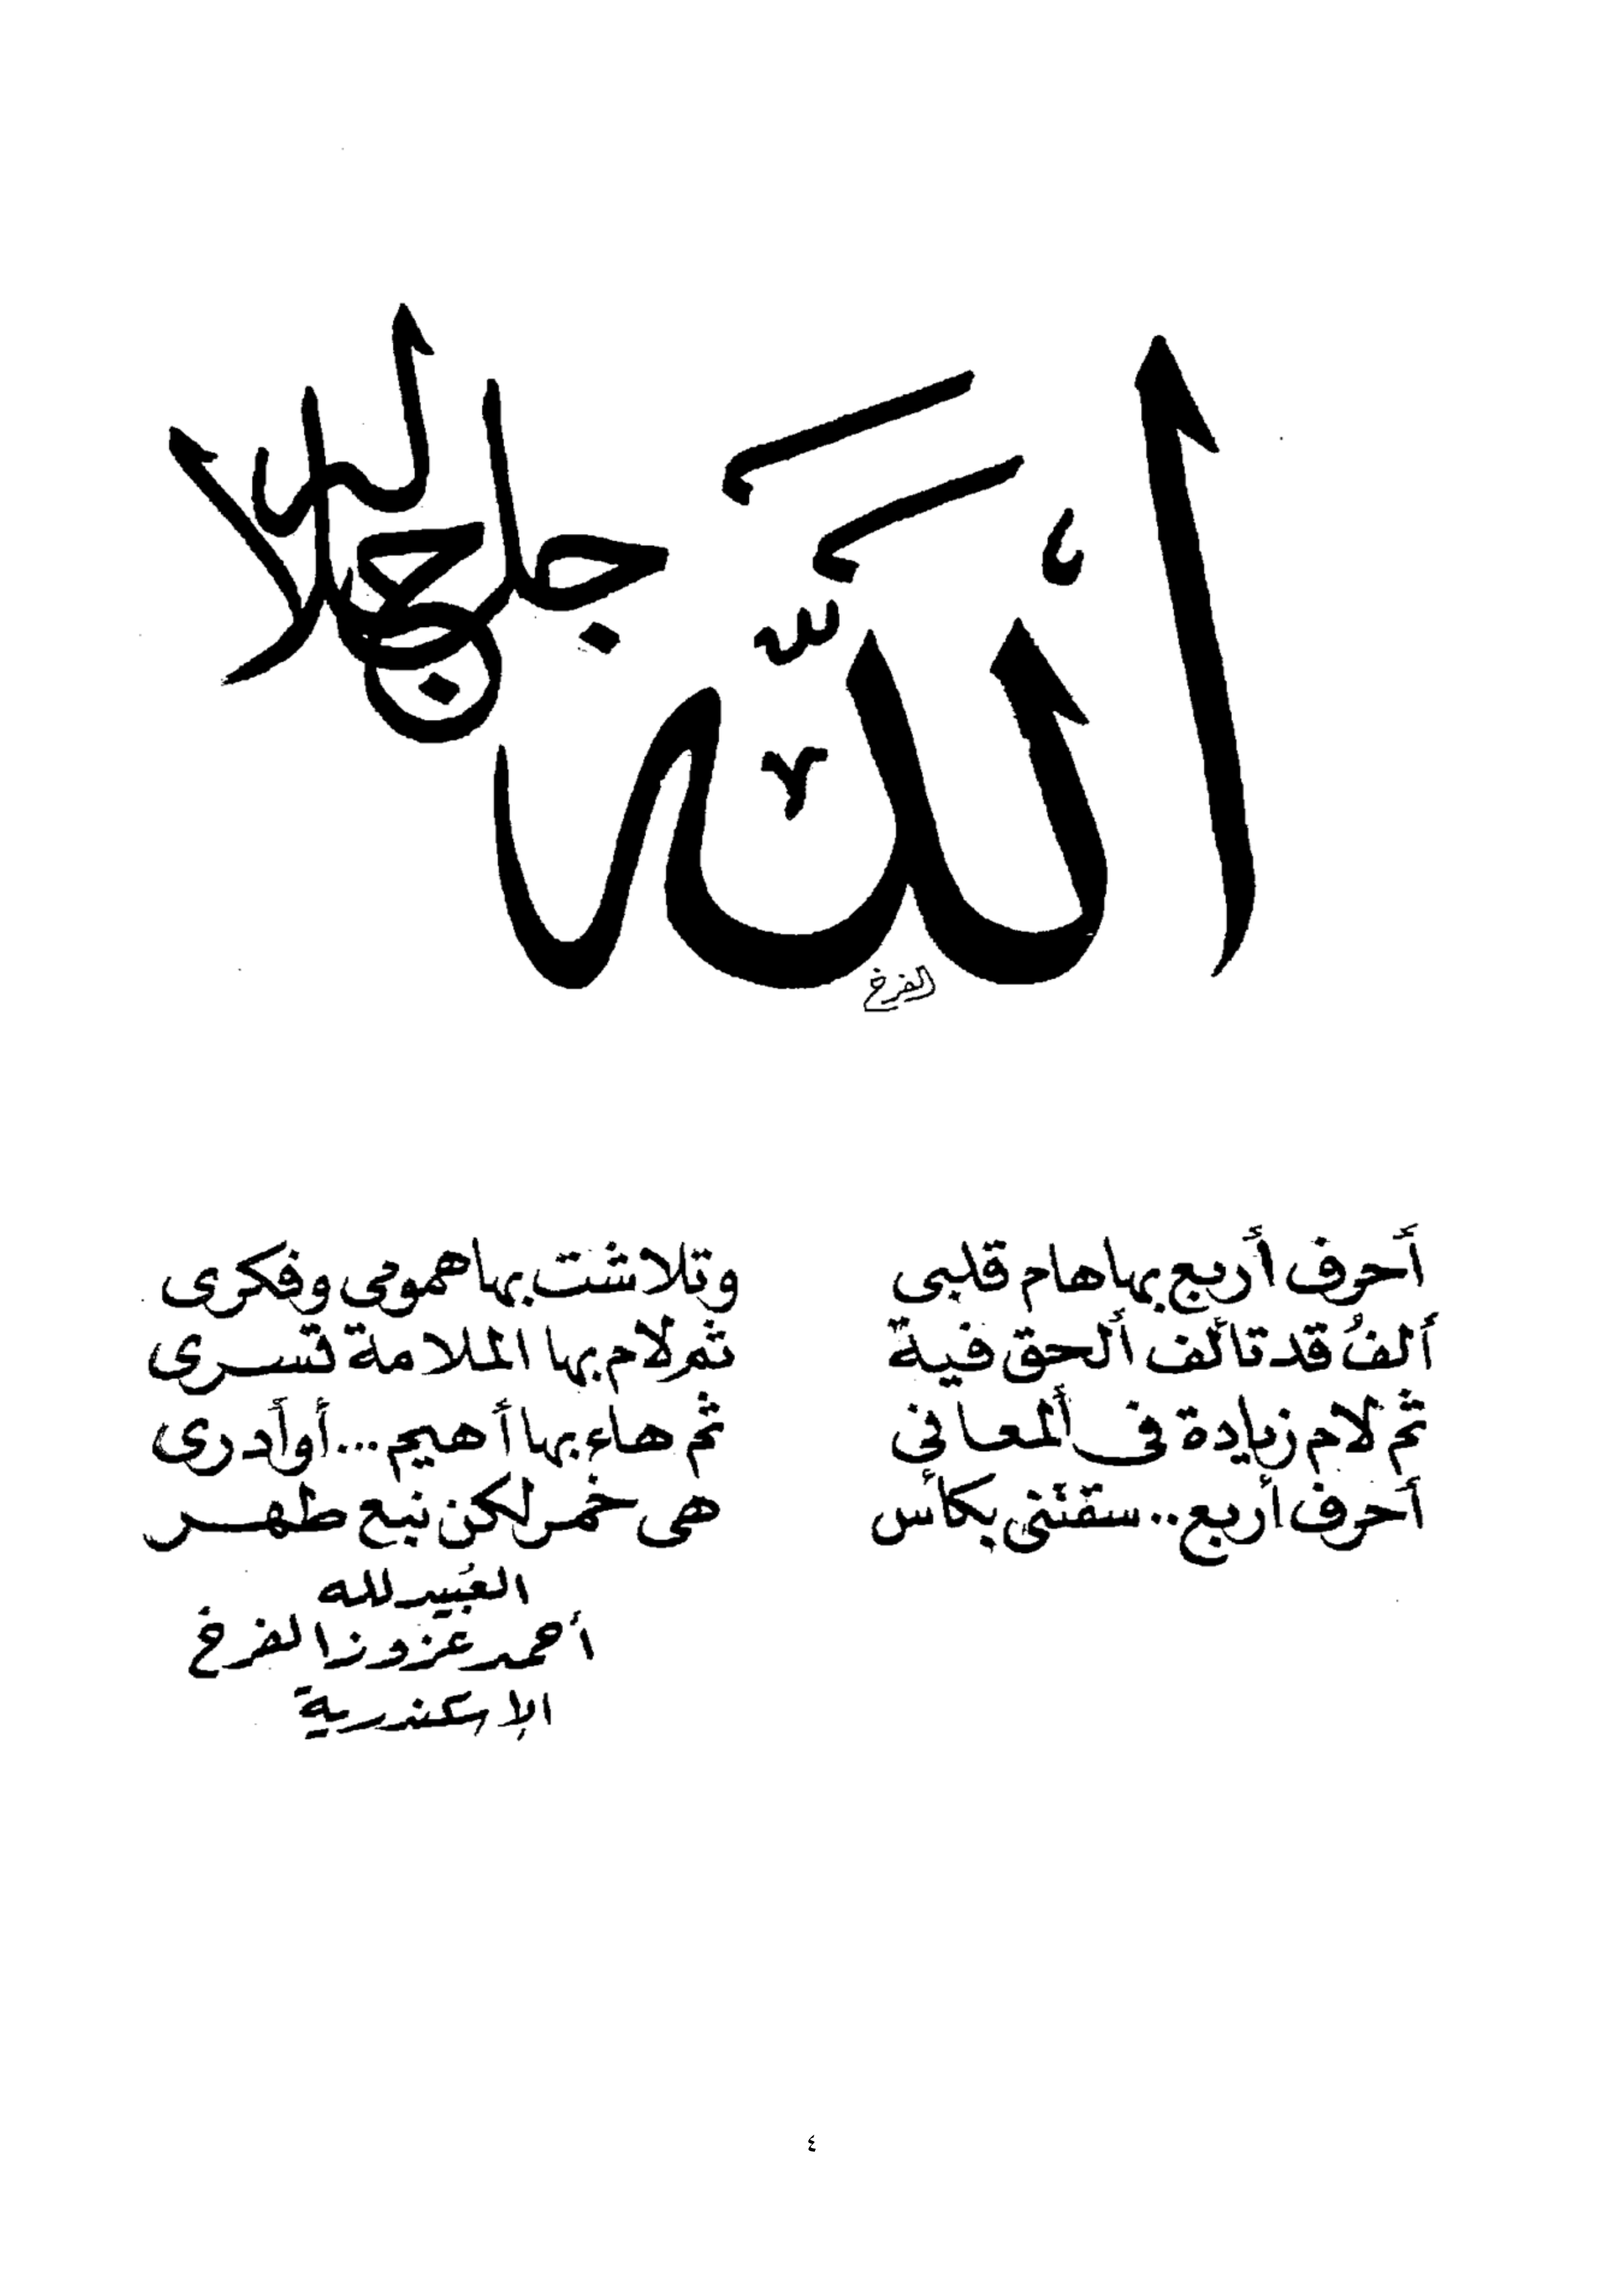 الله جل جلاله
الفرخ
أحرف أربع بها هام قلبى وتلاشت بها همومى وفكرى
ألفُ قد تألف ألحق فية ثم لام بها الملامة تسرى
ثم لام زيادة فى ألمعانى ثم هاء بها أهيم... أوأدرى
أحرف أربع.. سقتنى بكأس هى خمر لكن نبع طهر
العُبيد لله
أحمد عزوز الفرخ
الإسكندرية
٤